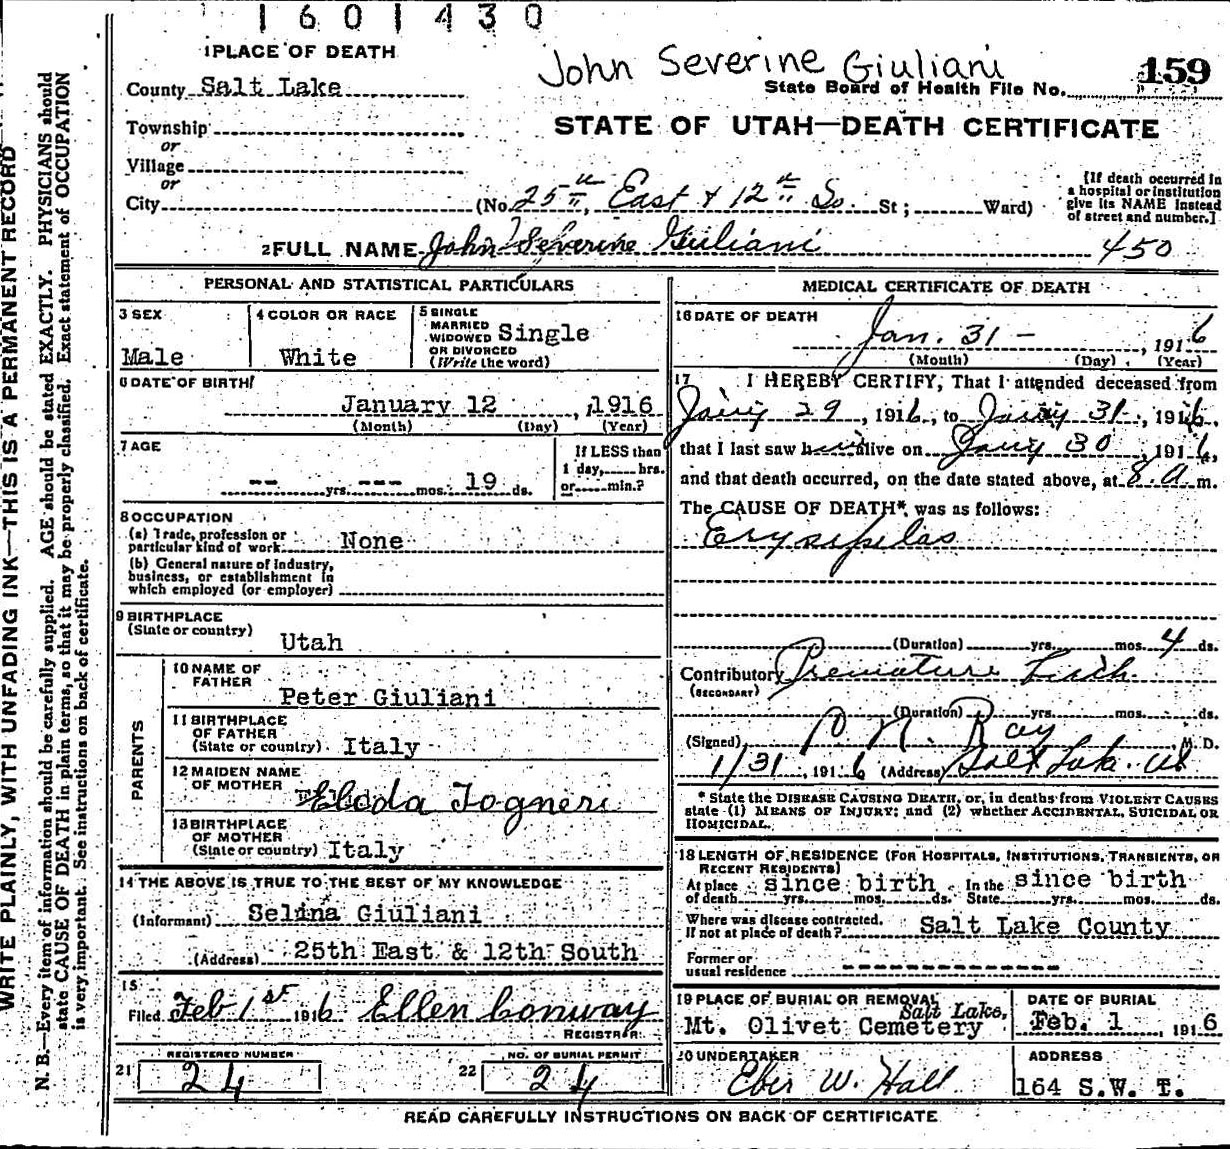 1601430
1 PLACE OF DEATH
John Severine Giuliani
159
County Salt Lake
State Board of Health File No.
Township
or
Village
or
City
STATE OF UTAH—DEATH CERTIFICATE
(No. 25th East & 12th So. St; Ward)
[If death occurred in a hospital or institution give its NAME instead of street and number.]
2 FULL NAME John Severine Giuliani
450
PERSONAL AND STATISTICAL PARTICULARS
3 SEX
Male
4 COLOR OR RACE
White
5 SINGLE MARRIED WIDOWED OR DIVORCED (Write the word)
Single
6 DATE OF BIRTH
January 12, 1916
(Month) (Day) (Year)
7 AGE
-- yrs. --- mos. 19 ds.
If LESS than 1 day, hrs. or min.?
8 OCCUPATION
(a) Trade, profession or particular kind of work None
(b) General nature of Industry, business, or establishment in which employed (or employer)
9 BIRTHPLACE
(State or country)
Utah
PARENTS
10 NAME OF FATHER
Peter Giuliani
11 BIRTHPLACE OF FATHER
(State or country) Italy
12 MAIDEN NAME OF MOTHER
Eleda Togneri
13 BIRTHPLACE OF MOTHER
(State or country) Italy
14 THE ABOVE IS TRUE TO THE BEST OF MY KNOWLEDGE
(Informant) Selina Giuliani
(Address) 25th East & 12th South
15
Filed Feb 1st 1916 Ellen Conway
REGISTRAR
REGISTERED NUMBER
21 24
NO. OF BURIAL PERMIT
22 24
MEDICAL CERTIFICATE OF DEATH
16 DATE OF DEATH
Jan. 31 - , 1916
(Month) (Day) (Year)
17 I HEREBY CERTIFY, That I attended deceased from
Jany 29, 1916, to Jany 31, 1916,
that I last saw him alive on Jany 30, 1916,
and that death occurred, on the date stated above, at 8. a m.
The CAUSE OF DEATH*, was as follows:
Erysipelas
(Duration) yrs. mos. 4 ds.
Contributory Premature Birth
(SECONDARY)
(Duration) yrs. mos. ds.
(Signed) Ray, M. D.
1/31, 1916 (Address) Salt Lake. Ut
* State the DISEASE CAUSING DEATH, or, in deaths from VIOLENT CAUSES
state (1) MEANS OF INJURY; and (2) whether ACCIDENTAL, SUICIDAL OR
HOMICIDAL.
18 LENGTH OF RESIDENCE (FOR HOSPITALS, INSTITUTIONS, TRANSIENTS, OR
RECENT RESIDENTS)
At place of death since birth yrs. mos. ds. In the State since birth yrs. mos. ds.
Where was disease contracted,
If not at place of death? Salt Lake County
Former or
usual residence -------------
19 PLACE OF BURIAL OR REMOVAL
Salt Lake,
Mt. Olivet Cemetery
DATE OF BURIAL
Feb. 1, 1916
20 UNDERTAKER
Eber W. Hall
ADDRESS
164 S.W. T.
READ CAREFULLY INSTRUCTIONS ON BACK OF CERTIFICATE
WRITE PLAINLY, WITH UNFADING INK—THIS IS A PERMANENT RECORD
N. B.—Every item of information should be carefully supplied. AGE should be stated EXACTLY. PHYSICIANS should
state CAUSE OF DEATH in plain terms, so that it may be properly classified. Exact statement of OCCUPATION
is very important. See instructions on back of certificate.